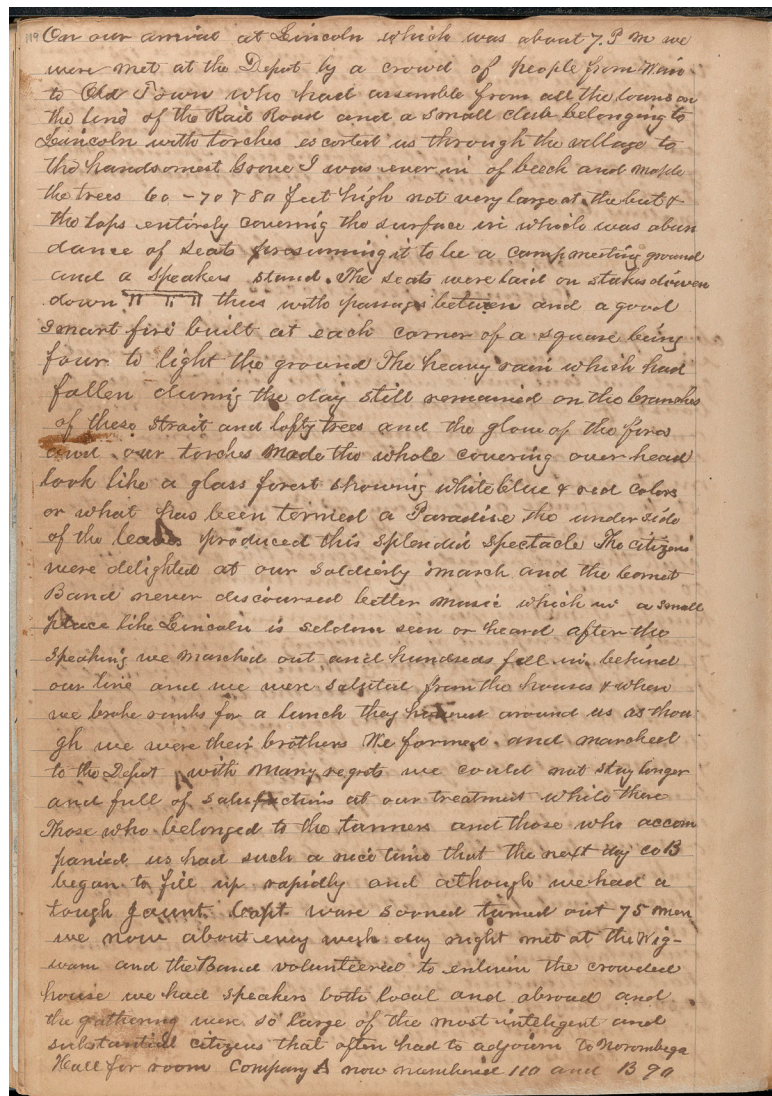 119 On our arrival at Lincoln which was about 7. P M we
were met at the Depot by a crowd of people from Winn
to Old Town who had assemble from all the towns on
the line of the Rail Road and a small club belonging to
Lincoln with torches escorted us through the village to
the handsomest Grove I was ever in of beech and maple
the trees 60 - 70 & 80 feet high not very large at the but &
the tops entirely covernig the surface in which was abun
dance of seats presumnig it to be a camp meeting ground
and a speakers stand. The seats were laid on stakes driven
down thus with passages between and a good
smart fire built at each corner of a square being
four to light the ground The heavy rain which had
fallen durnig the day still remained on the branches
of these strait and lofty trees and the glow of the fires
and our torches made the whole covering over head
look like a glass forest shownig white blue & red colors
or what has been termed a Paradise the under side
of the leaves produced this splendid spectacle The citizens
were delighted at our soldierly march and the Cornet
Band never discoursed better music which in a small
place like Lincoln is seldom seen or heard after the
speaking we marched out and hundreds fell in behind
our line and we were saluted from the houses & when
we broke ranks for a lunch they around us as thou
gh we were their brothers We formed and marched
to the Depot with many regrets we could not stay longer
and full of satisfaction at our treatment while there
Those who belonged to the tanners and those who accom
panied us had such a nice time that the next day co B
began to fill up rapidly and although we had a
tough jaunt Capt ware sooned turned out 75 men
we now about evey week day night met at the Wig-
wam and the Band volunteered to enliven the crowded
house we had speakers both local and abroad and
the gathering were so large of the most inteligent and
substantial citizens that often had to adjourn to Norombega
Hall for room Company A now numbered 110 and B 90